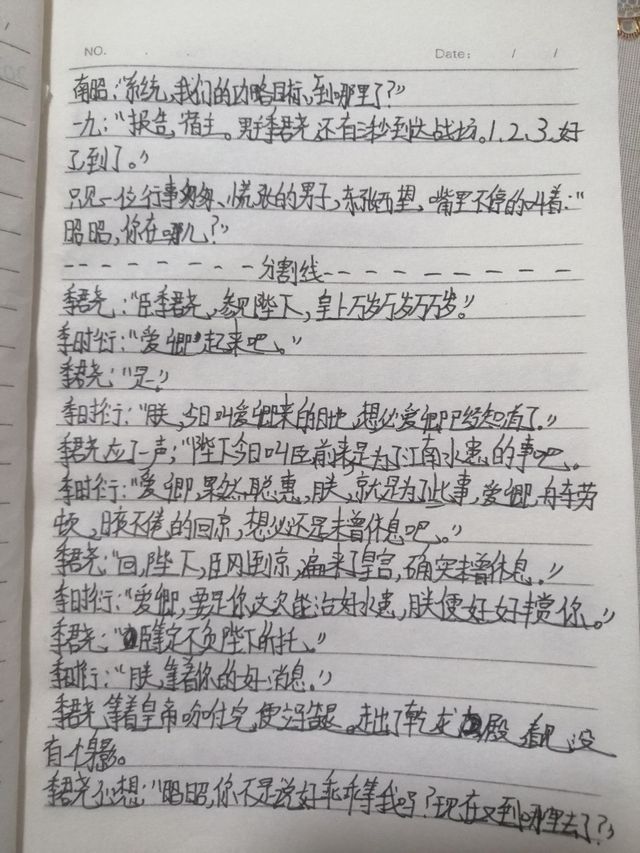 NO. Date: / /
南昭:“系统,我们的功略目标,到哪里了?”
一九:“报告,宿主。男主季君尧,还有三秒到达战坊。1、2、3、好
了,到了。”
只见一位行事匆匆、慌张的男子,东张西望,嘴里不停的叫着:“
昭昭,你在哪儿?”
-------分割线----------
季君尧:“臣季君尧,参见陛下,皇上万岁万岁万万岁。”
李时衍:“爱卿,起来吧。”
季君尧:“是。”
李时衍:“朕,今日叫爱卿来的目地,想必爱卿已经知道了。”
季君尧应了一声:“陛下今日叫臣前来是为了江南水患的事吧。
李时衍:“爱卿,果然聪惠,朕,就是为了此事,爱卿,舟车劳
顿,日夜不倦的回京,想必还是未曾休息吧。”
季君尧:“回,陛下,臣刚到京,遍来了皇宫,确实未曾休息。”
李时衍:“爱卿,要是你这次能治好水患,朕便好好丰赏你。”
季君尧:“臣笔定不负陛下所托。”
李时衍:“朕,等着你的好消息。”
季君尧等着皇帝吩咐完,便 。走出了乾龙殿 看见 没
有一个身影。
季君尧心想:“昭昭,你不是说好乖乖等我吗?现在又到哪里去了?”